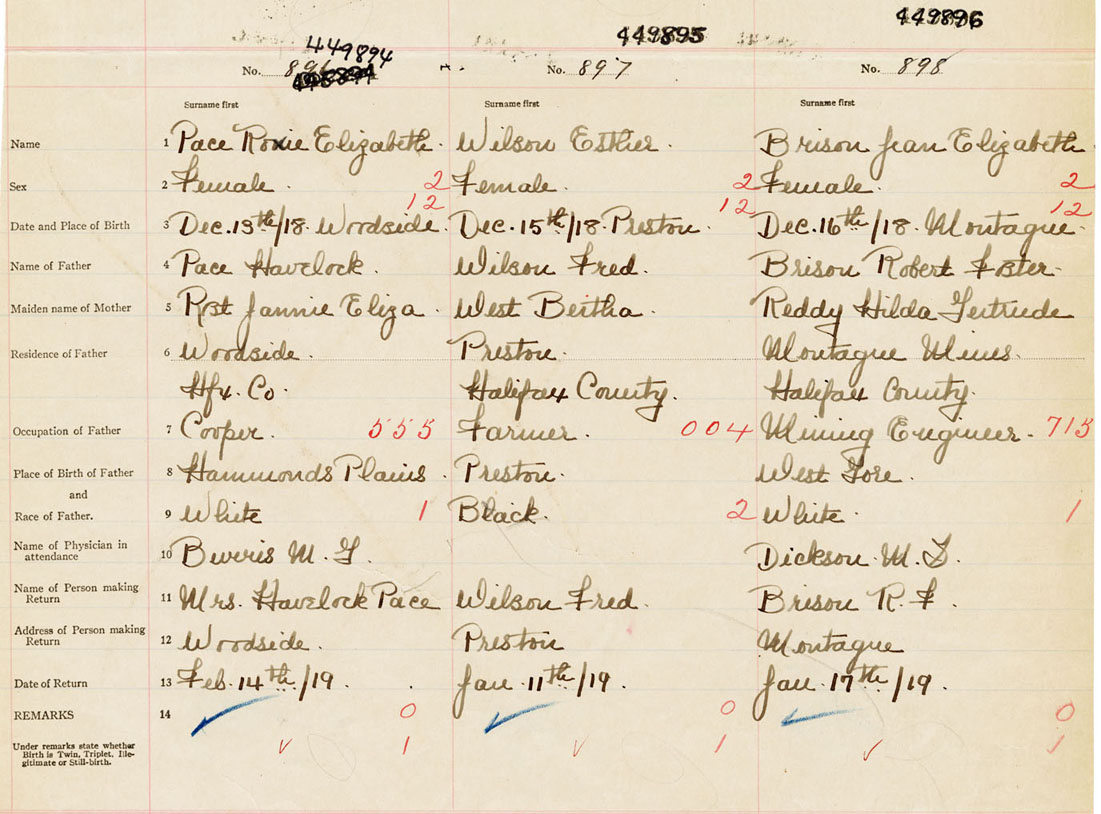 449894 449895 449896
No. 896 No. 897 No. 898
Surname first Surname first Surname first
Name 1 Pace Roxie Elizabeth. Wilson Esther. Brison Jean Elizabeth
Sex 2 Female. 2 Female. 2 Female. 2
12 12 12
Date and Place of Birth 3 Dec. 13th/18. Woodside. Dec. 15th/18. Preston. Dec. 16th/18. Montague.
Name of Father 4 Pace Havelock. Wilson Fred. Brison Robert Foster.
Maiden name of Mother 5 Jannie Eliza. West Bertha. Reddy Hilda Gertrude
Residence of Father 6 Woodside. Preston. Montague Mines.
Hfx. Co. Halifax County. Halifax County.
Occupation of Father 7 Cooper. 555 Farmer. 004 Mining Engineer. 715
Place of Birth of Father 8 Hammonds Plains. Preston. West Gore.
and
Race of Father. 9 White 1 Black. 2 White. 1
Name of Physician in
attendance 10 M. G. Dickson. M. S.
Name of Person making
Return 11 Mrs. Havelock Pace Wilson Fred. Brison R. F.
Address of Person making
Return 12 Woodside. Preston Montague
Date of Return 13 Feb. 14th/19. Jan. 11th/19. Jan. 17th/19.
REMARKS 14 0 0 0
Under remarks state whether
Birth is Twin, Triplet, Ille-
gitimate or Still-birth. 1 1 1